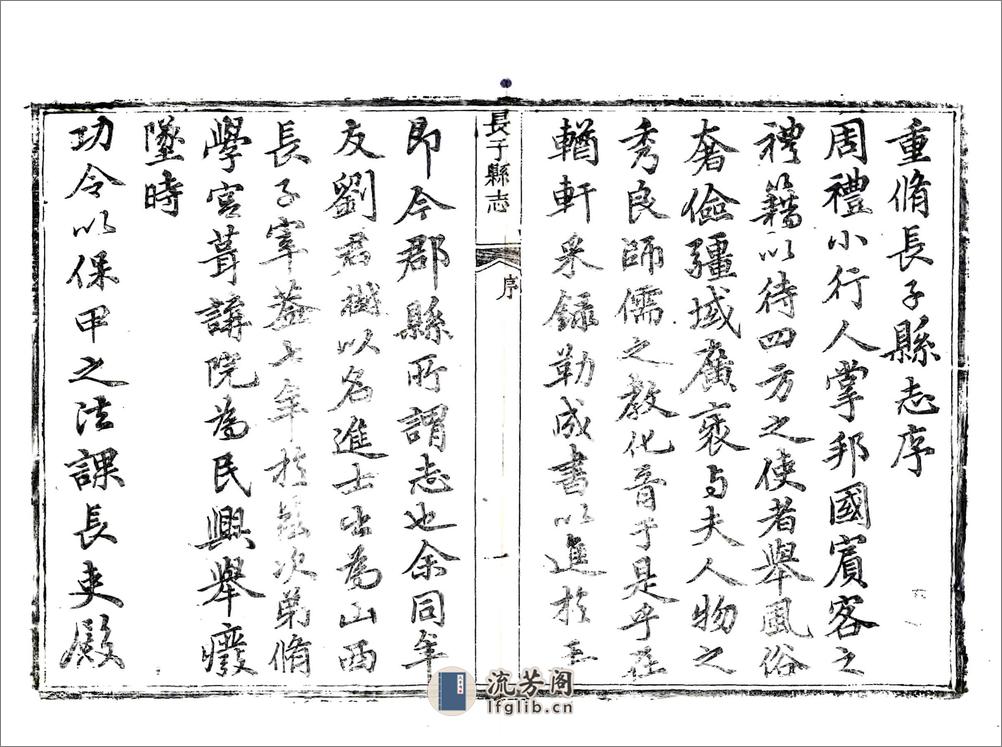 重脩長子縣志序
周禮小行人掌邦國賓客之
禮籍以待四方之使者舉風俗
奢儉疆域廣袤与夫人物之
秀良師儒之教化胥于是乎在
輶軒采録勒成書以進於王
長子縣志 序 一
即今郡縣所謂志也余同年
友劉君樾以名進士出為山西
長子宰葢七年於茲次第脩
學宮葺講院為民興舉癈
墜時
功令以保甲之法課長吏殿
流芳阁
lfglib.cn